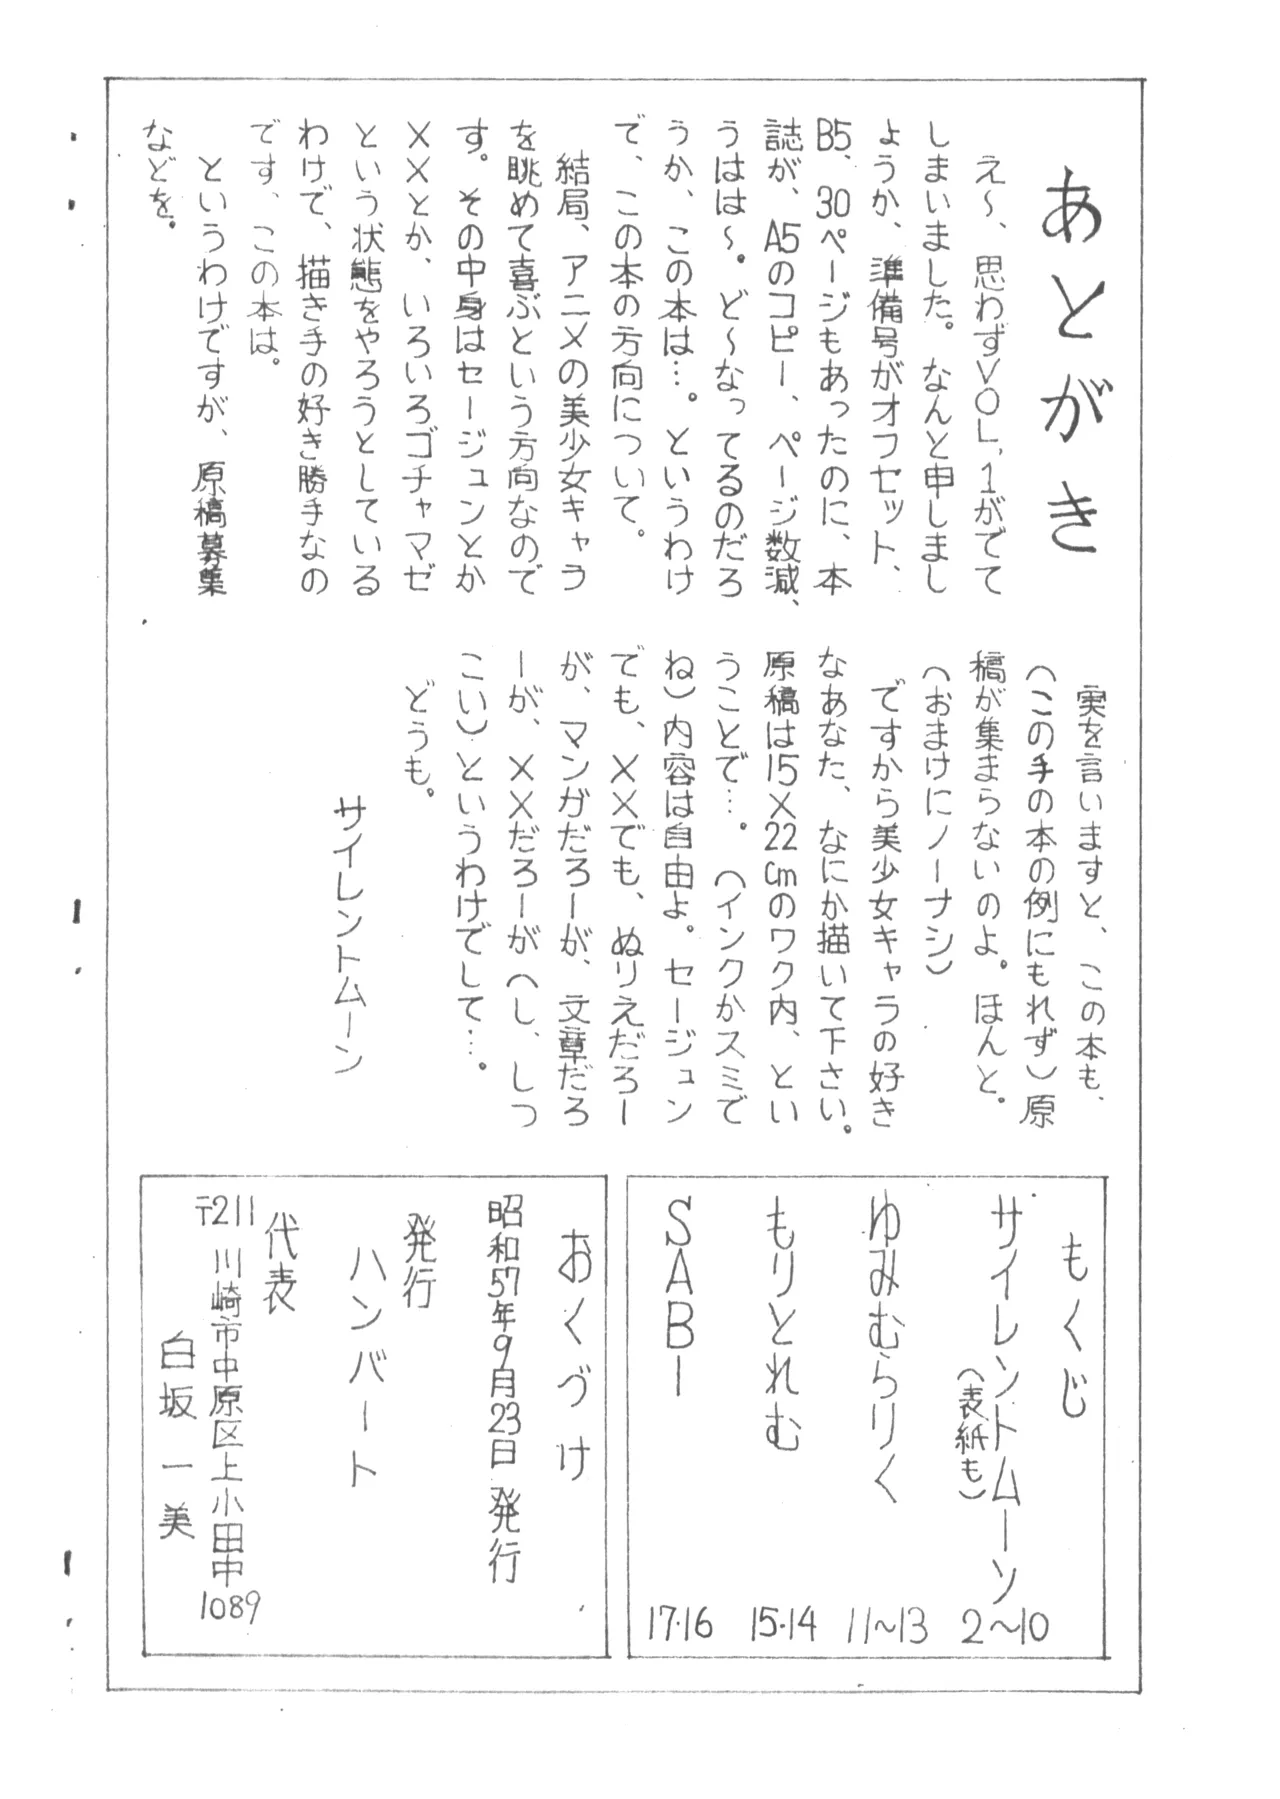 あとがき
え〜、思わずVOL,1がでて
しまいました。なんと申しまし
ょうか、準備号がオフセット、
B5、30ページもあったのに、本
誌が、A5のコピー、ページ数減、
うはは〜。ど〜なってるのだろ
うか、この本は…。というわけ
で、この本の方向について。
結局、アニメの美少女キャラ
を眺めて喜ぶという方向なので
す。その中身はセージュンとか
××とか、いろいろゴチャマゼ
という状態をやろうとしている
わけで、描き手の好き勝手なの
です、この本は。
というわけですが、原稿募集
などを。
実を言いますと、この本も、
(この手の本の例にもれず)原
稿が集まらないのよ。ほんと。
(おまけにノーナシ)
ですから美少女キャラの好き
なあなた、なにか描いて下さい。
原稿は15×22cmのワク内、とい
うことで…。(インクかスミで
ね)内容は自由よ。セージュン
でも、××でも、ぬりえだろー
が、マンガだろーが、文章だろ
ーが、××だろーが(し、しつ
こい)というわけでして…。
どうも。
サイレントムーン
もくじ
サイレントムーン 2〜10
(表紙も)
ゆみむらりく 11〜13
もりとれむ 15・14
SABー 17・16
おくづけ
昭和57年9月23日 発行
発行
ハンバート
代表
〒211 川崎市中原区上小田中1089
白坂一美